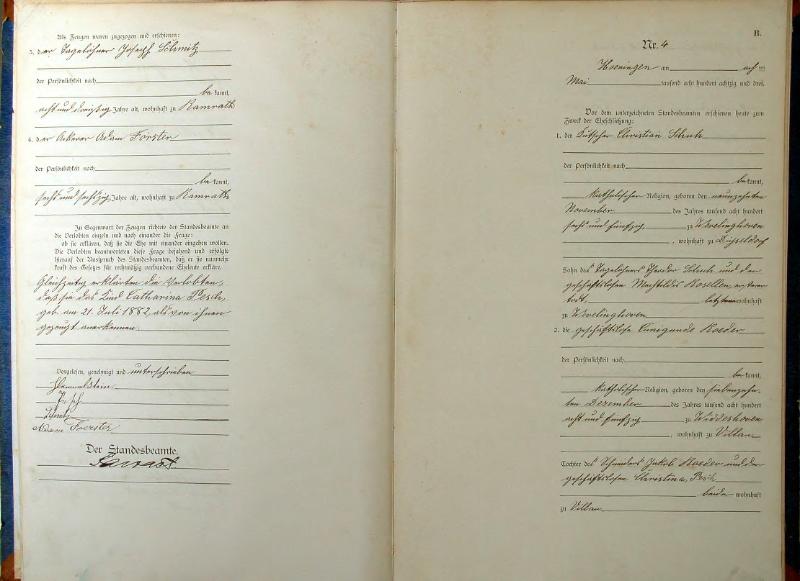 Als Zeugen waren zugezogen und erschienen:
3. der Tagelöhner Joseph Schmitz
der Persönlichkeit nach
be kannt,
acht und dreißig Jahre alt, wohnhaft zu Ramrath
4. der Ackerer Adam Forster
der Persönlichkeit nach
be kannt,
sechs und sechzig Jahre alt, wohnhaft zu Ramrath
In Gegenwart der Zeugen richtete der Standesbeamte an
die Verlobten einzeln und nach einander die Frage:
ob sie erklären, daß sie die Ehe mit einander eingehen wollen.
Die Verlobten beantworteten diese Frage bejahend und erfolgte
hierauf der Ausspruch des Standesbeamten, daß er sie nunmehr
kraft des Gesetzes für rechtmäßig verbundene Eheleute erkläre.
Gleichzeitig erklärten die Verlobten,
daß sie das Kind Catharina
geb. am 21. Juli 1882, als von ihnen
gezeugt anerkennen.
Vorgelesen, genehmigt und unterschrieben
Schmitz
Adam Foerster
Der Standesbeamte.
B.
Nr. 4
Hoeningen am acht ten
Mai tausend acht hundert achtzig und drei.
Vor dem unterzeichneten Standesbeamten erschienen heute zum
Zweck der Eheschließung:
1. der Kutscher Christian
der Persönlichkeit nach
be kannt,
katholischer Religion, geboren den neunzehnten
November des Jahres tausend acht hundert
sechs und fünfzig zu Wevelinghoven
, wohnhaft zu Düsseldorf
Sohn des Tagelöhners Theodor und der
geschäftslosen Mechtildis Rosellen, ersterer
todt, letztere wohnhaft
zu Wevelinghoven
2. die geschäftslose Cunigunde Roeder
der Persönlichkeit nach
be kannt,
katholischer Religion, geboren den siebenzehn-
ten Dezember des Jahres tausend acht hundert
acht und fünfzig zu Widdeshoven
, wohnhaft zu Villau
Tochter des Schneiders Jakob Roeder und der
geschäftslosen Christina
beide wohnhaft
zu Villau